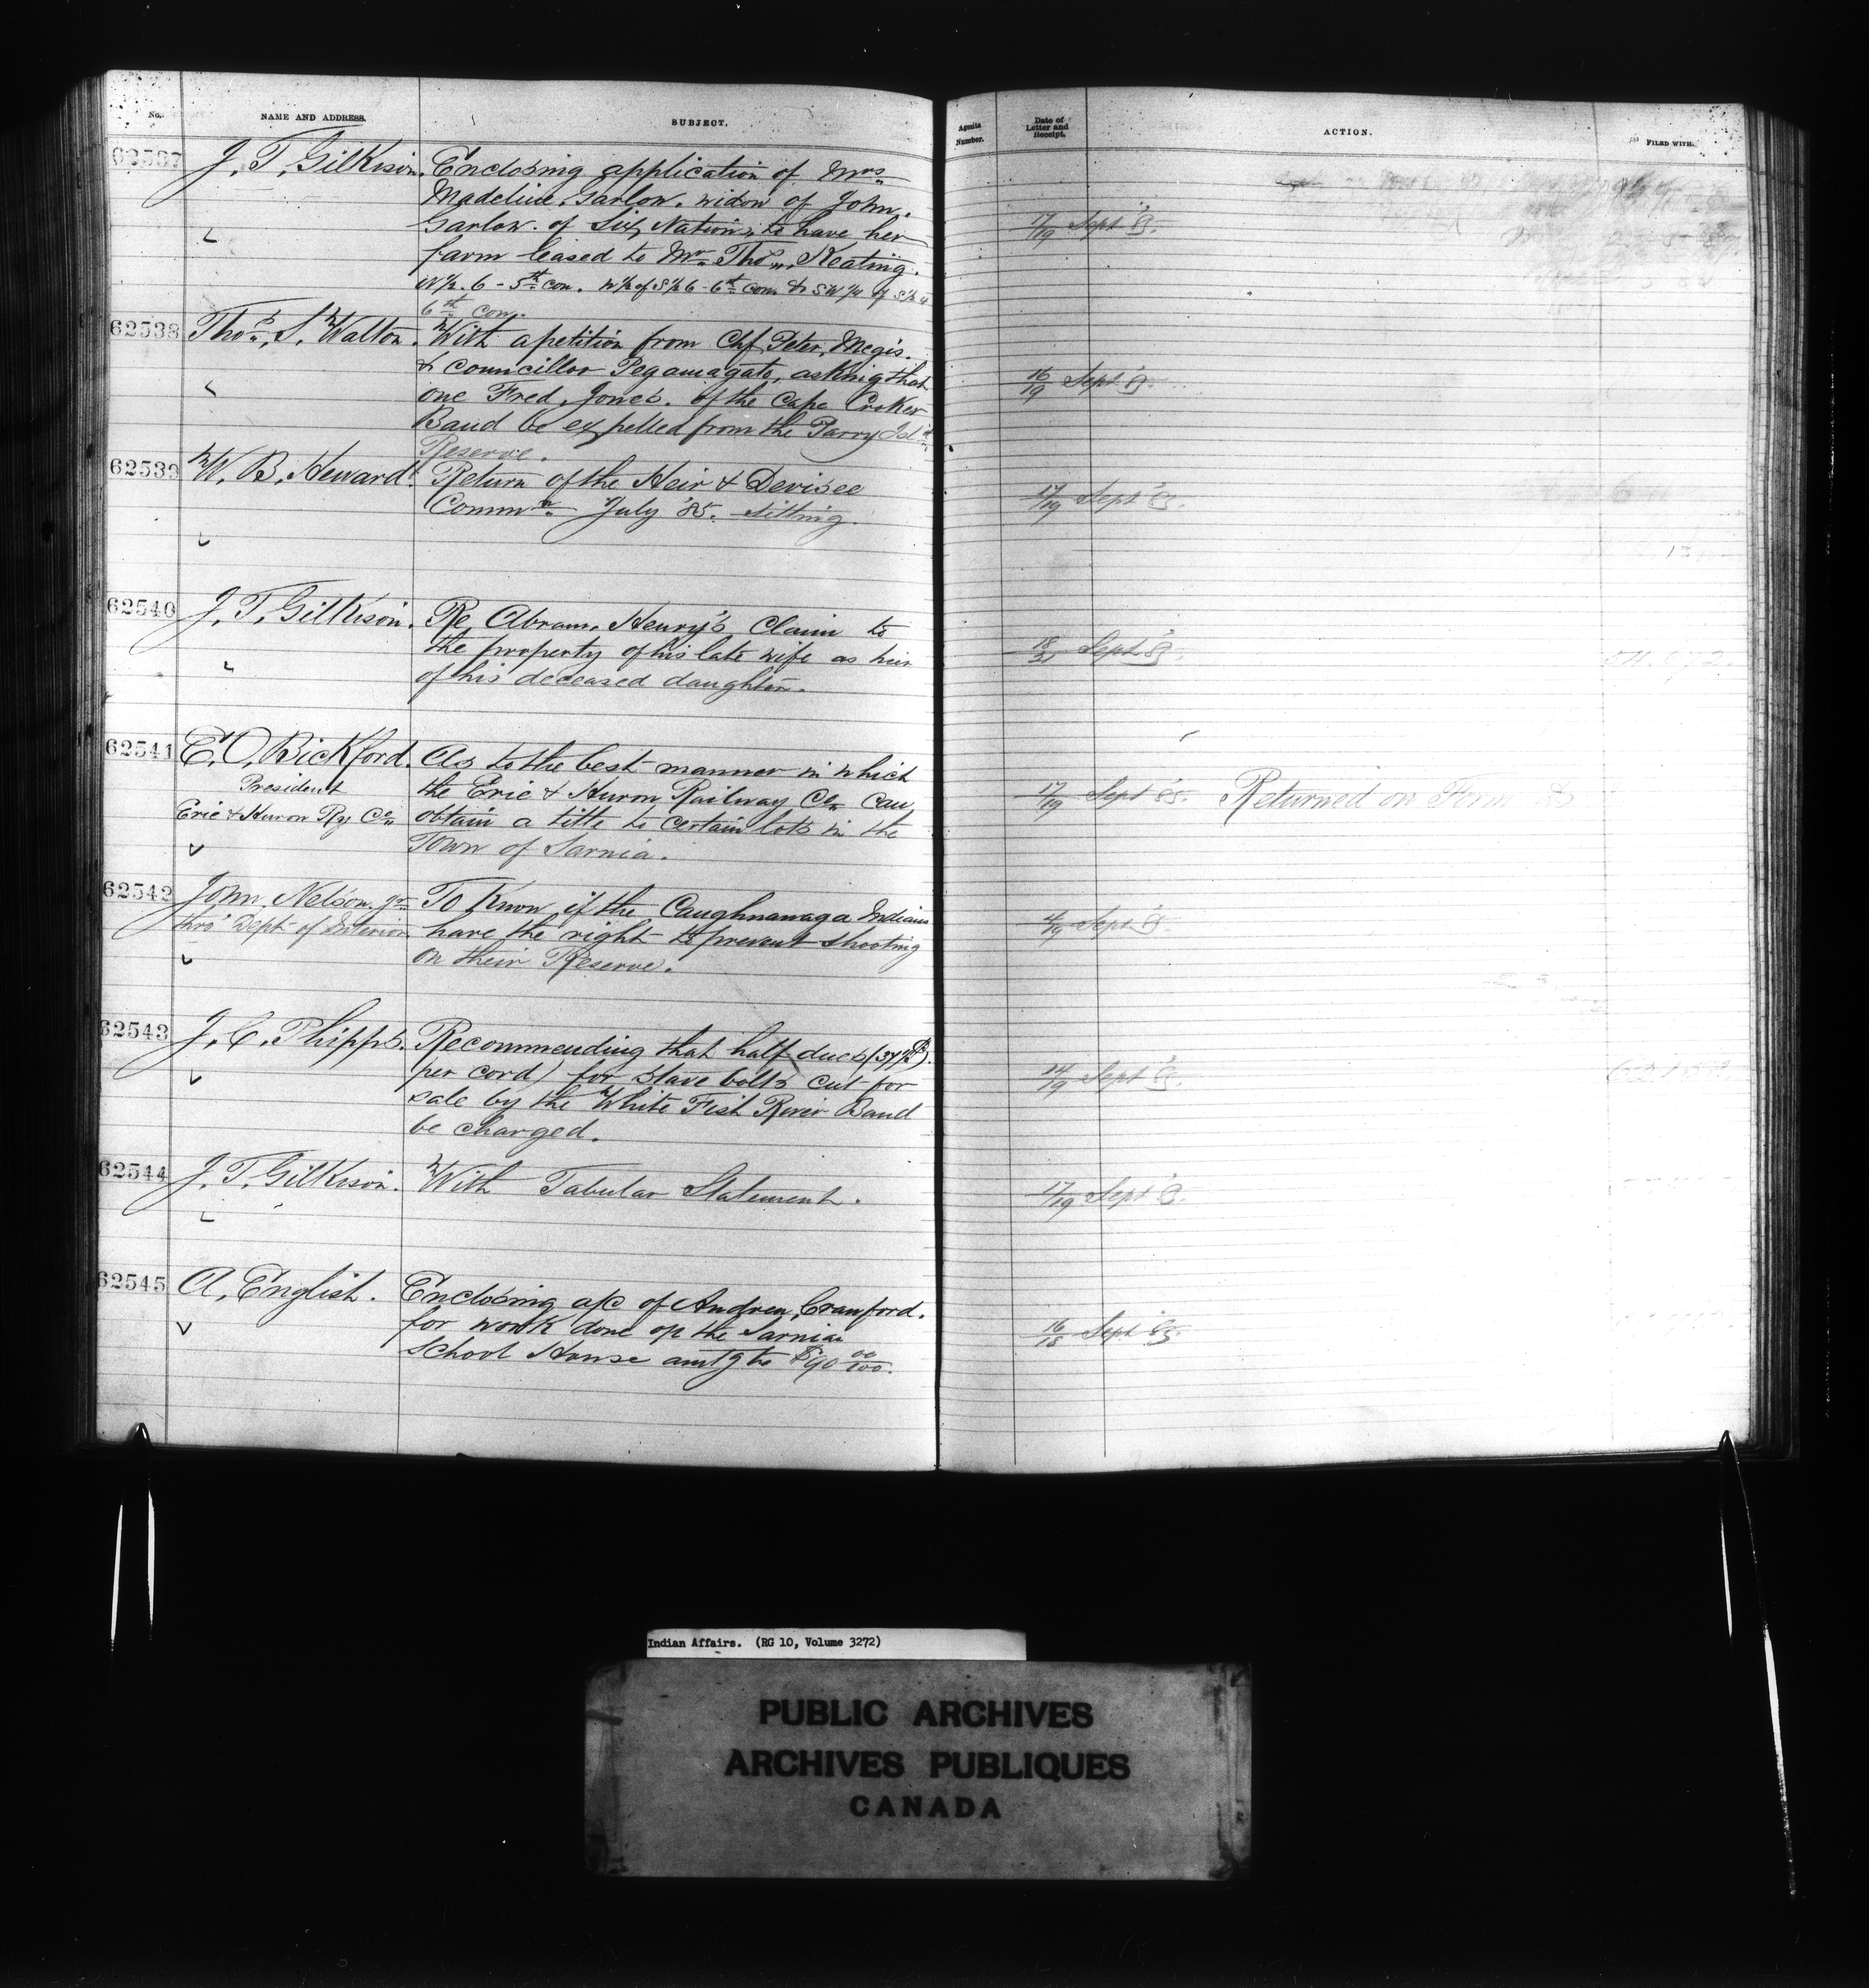 No. NAME AND ADDRESS. SUBJECT. Agents Number. Date of Letter and Receipt. ACTION. FILED WITH.
62537 J. T. Gilkison. Enclosing application of Mrs
Madeline Garlow, widow of John
Garlow of Six Nations to have her 17/19 Sept '85.
farm leased to Mr Thos. Keating.
W½ 6 - 5th con. W½ of S½ 6 - 6th con & SW¼ of S½ 4
6th con.
62538 Thos. S. Walton. With a petition from Chf Peter Megis.
& councillor Pegamagato, asking that 16/19 Sept '85.
one Fred. Jones. of the Cape Croker
Band be expelled from the Parry Isl'd
Reserve.
62539 W. B. Heward. Return of the Heir & Devisee
Commn July '85. Sitting. 17/19 Sept '85.
62540 J. T. Gilkison. Re Abram Henry's Claim to
the property of his late wife as heir 18/21 Sept '85.
of his deceased daughter.
62541 E. O. Bickford. As to the best manner in which
President the Erie & Huron Railway Co. can 17/19 Sept '85. Returned on Form
Erie & Huron Ry Co. obtain a title to certain lots in the
Town of Sarnia.
62542 John Nelson jr. To Know if the Caughnawaga Indians
thro' Dept of Interior have the right to prevent shooting 4/19 Sept '85.
on their Reserve.
62543 J. C. Phipps. Recommending that half dues (37½ c.
per cord) for stave bolts cut for 14/19 Sept '85.
sale by the White Fish River Band
be charged.
62544 J. T. Gilkison. With Tabular Statement. 17/19 Sept '85.
62545 A. English. Enclosing a/c of Andrew Crawford.
for work done op the Sarnia 16/18 Sept '85.
School House amtg to $90 00/100.
Indian Affairs. (RG 10, Volume 3272)
PUBLIC ARCHIVES
ARCHIVES PUBLIQUES
CANADA